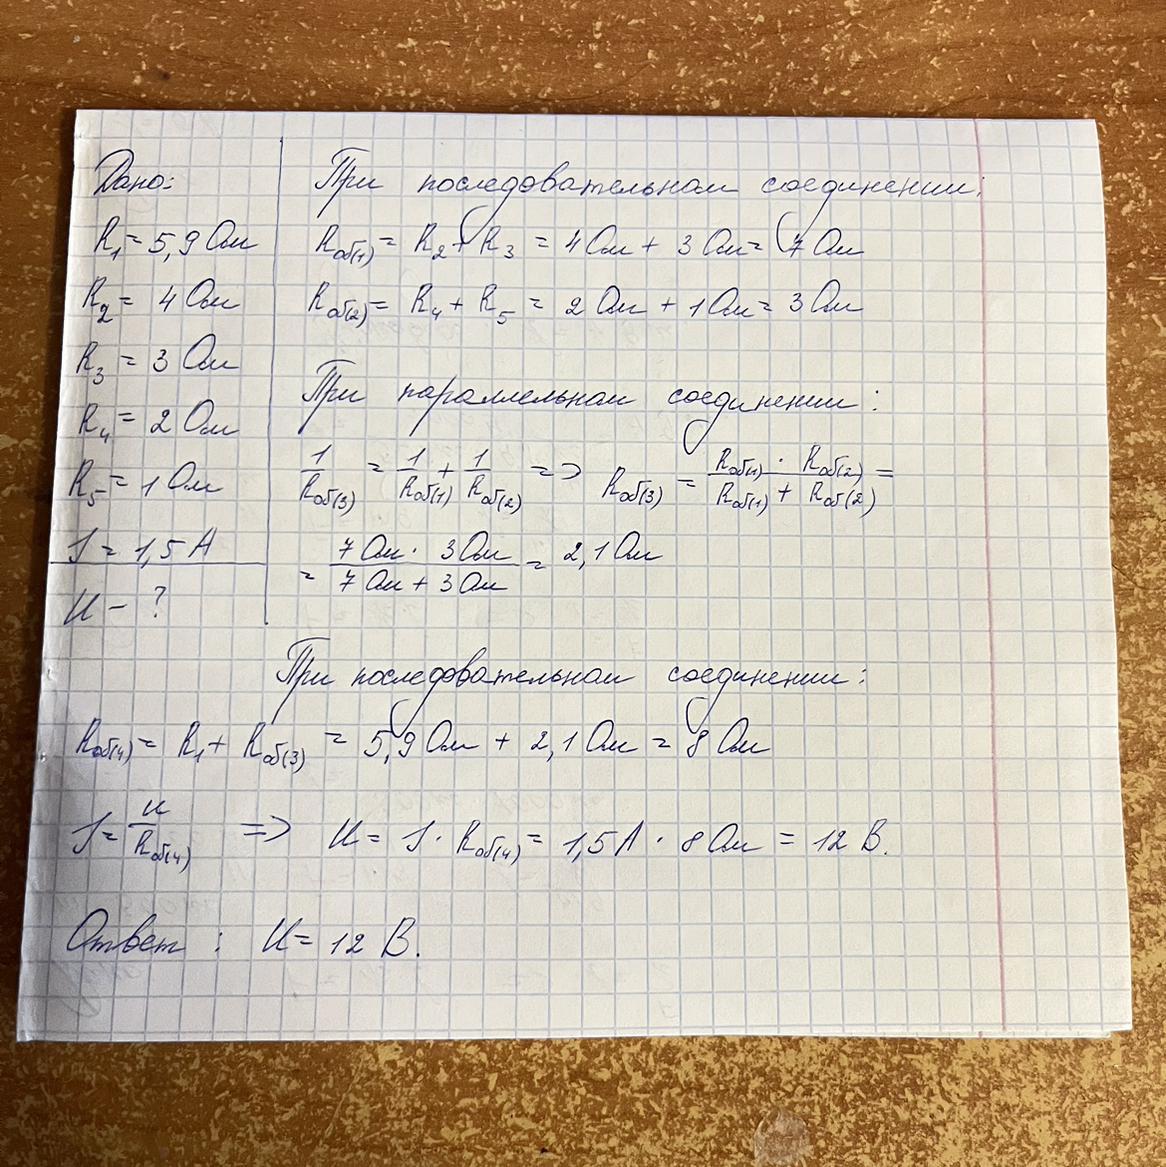 Дано:
R₁ = 5,9 Ом
R₂ = 4 Ом
R₃ = 3 Ом
R₄ = 2 Ом
R₅ = 1 Ом
I = 1,5 А
U - ?
При последовательном соединении:
Rоб(1) = R₂ + R₃ = 4 Ом + 3 Ом = 7 Ом
Rоб(2) = R₄ + R₅ = 2 Ом + 1 Ом = 3 Ом
При параллельном соединении:
1/Rоб(3) = 1/Rоб(1) + 1/Rоб(2) => Rоб(3) = Rоб(1) · Rоб(2) / Rоб(1) + Rоб(2) =
= 7 Ом · 3 Ом / 7 Ом + 3 Ом = 2,1 Ом
При последовательном соединении:
Rоб(4) = R₁ + Rоб(3) = 5,9 Ом + 2,1 Ом = 8 Ом
I = U/Rоб(4) => U = I · Rоб(4) = 1,5 А · 8 Ом = 12 В.
Ответ: U = 12 В.